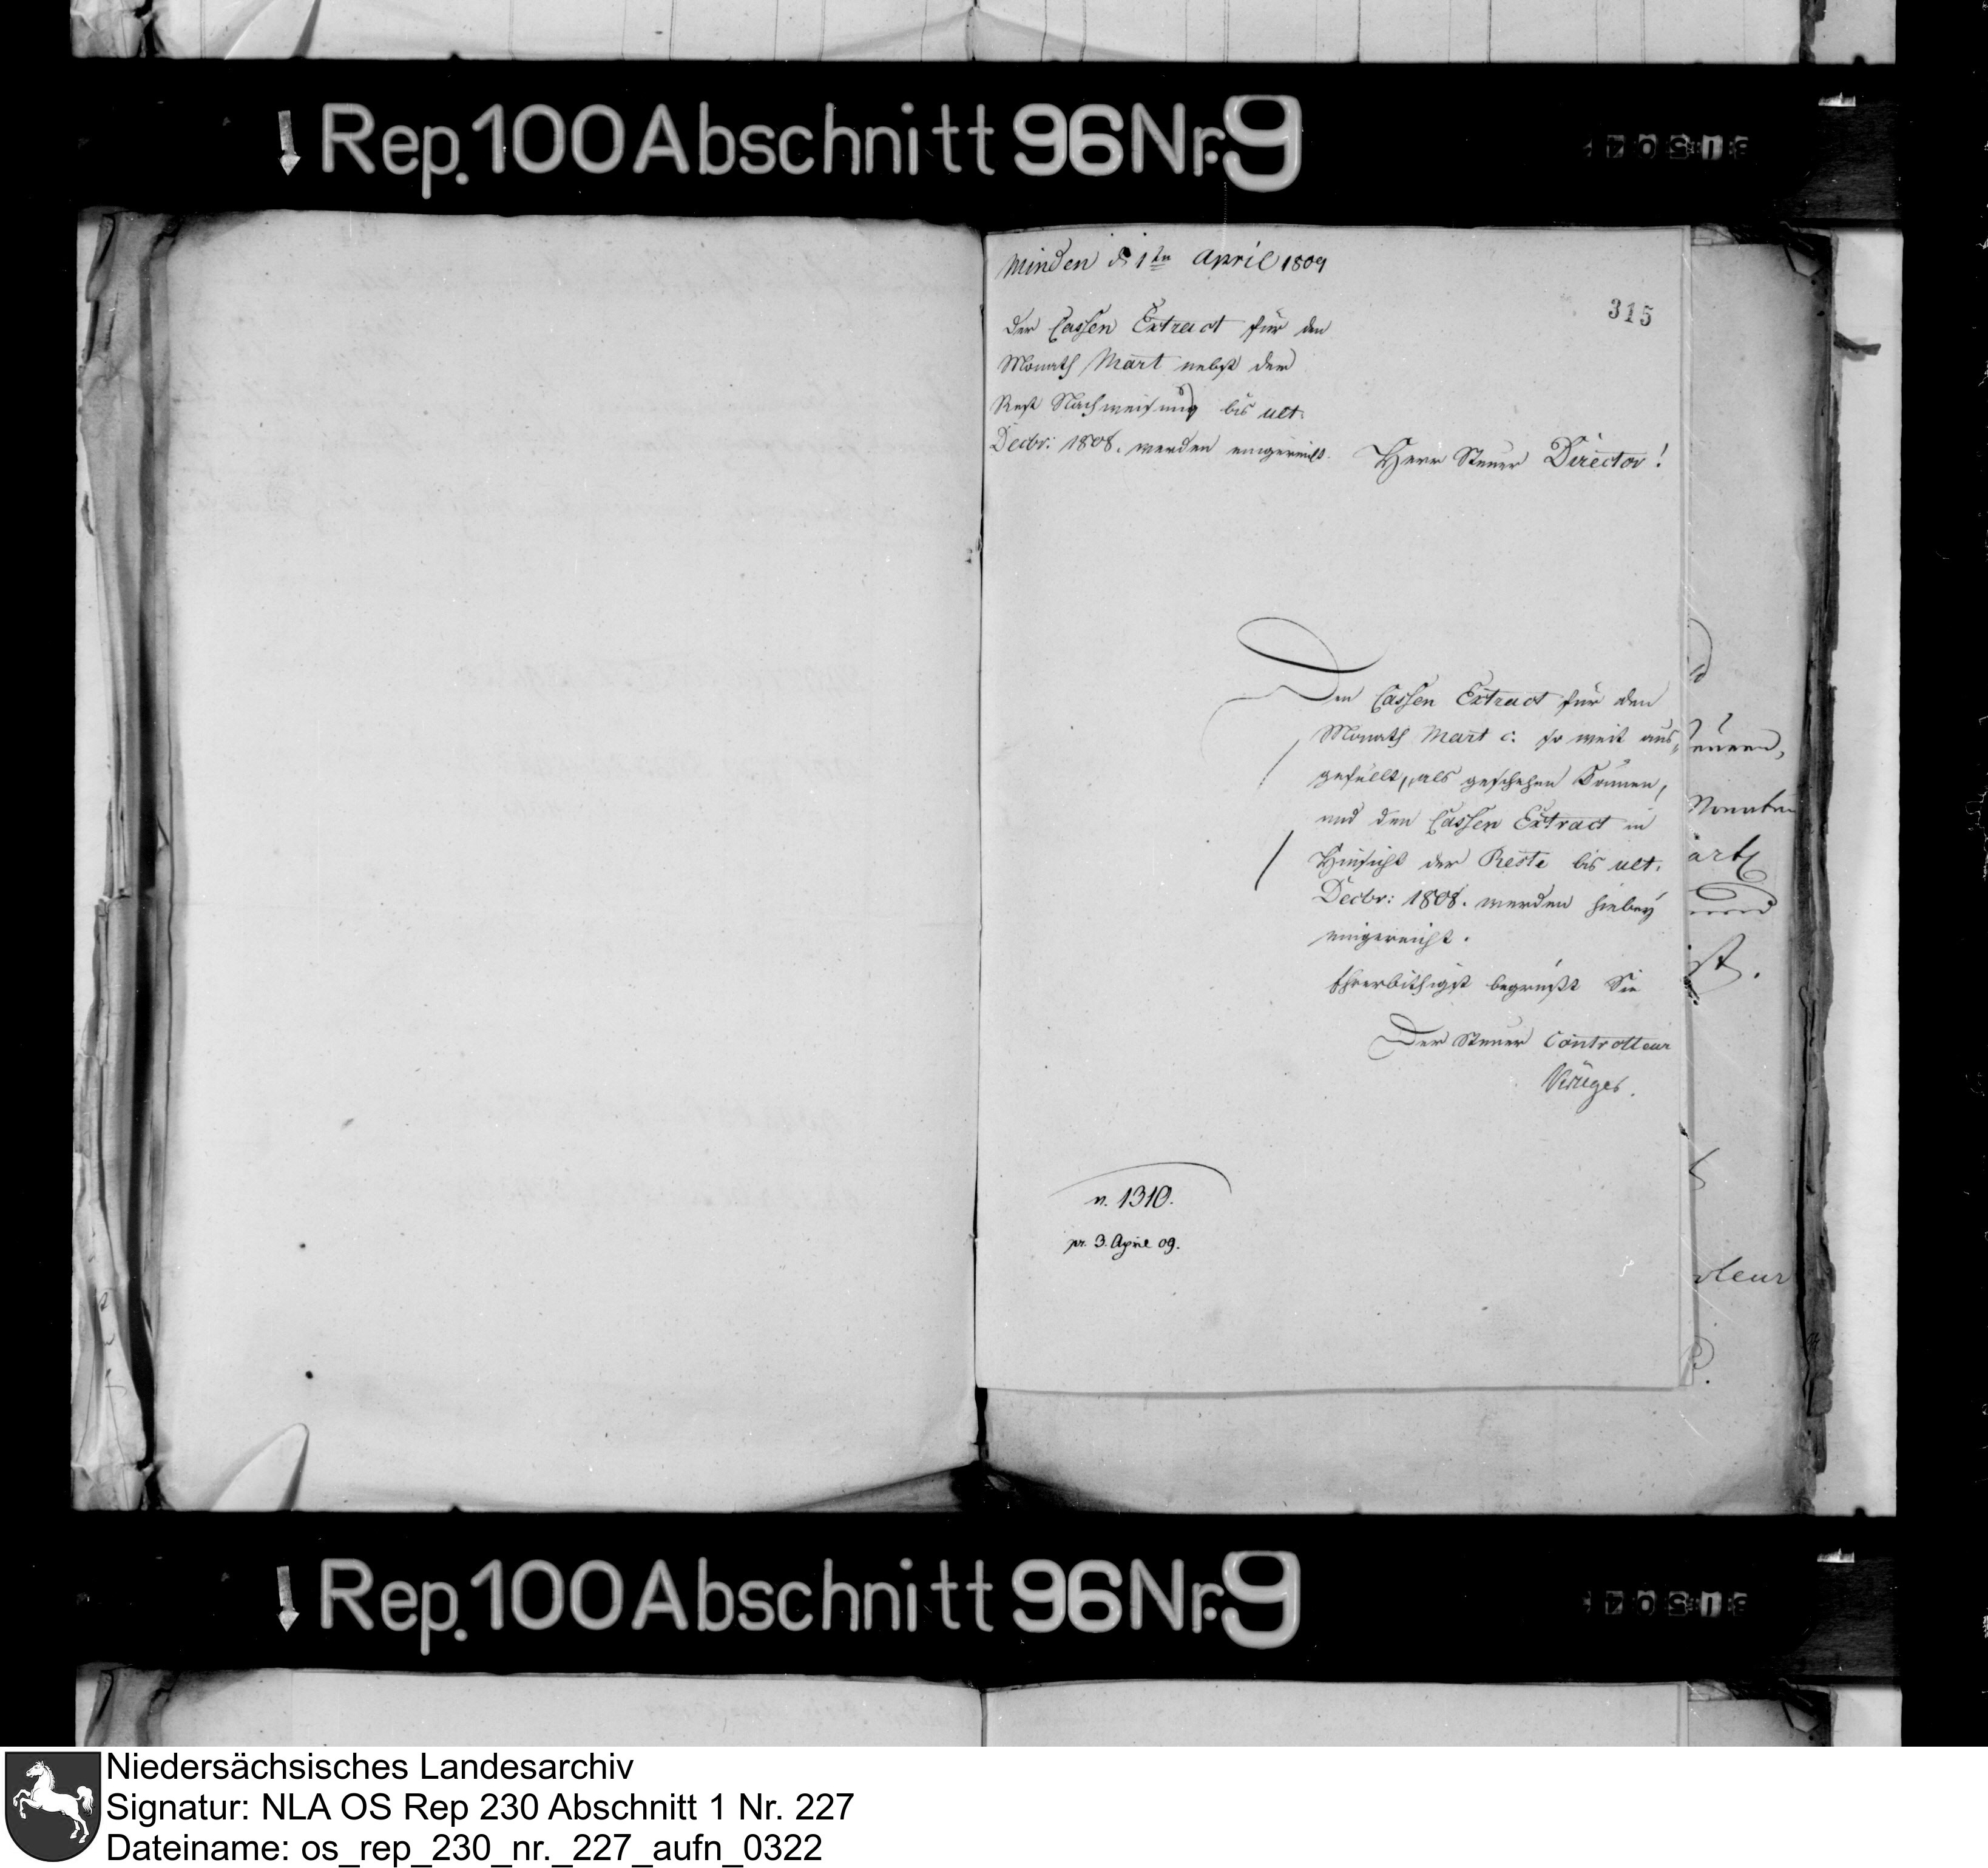 Rep. 100 Abschnitt 96 Nr. 9
Minden d 1ten April 1809
315
Der Cassen Extract für den
Monath Mart nebst dem
Rest Nachweisung bis ult.
Decbr: 1808. werden eingereicht.
Herr Steuer Director!
Den Cassen Extract für den
Monath Mart c. so weit aus-
gefüllt, als geschehen können,
und den Cassen Extract in
Hinsicht der Reste bis ult.
Decbr: 1808. werden hiebey
eingereicht.
Ehrerbithigst begrüßt Sie
Der Steuer Controlleur
Krüger.
n. 1310.
pr. 3. April 09.
Rep. 100 Abschnitt 96 Nr. 9
Niedersächsisches Landesarchiv
Signatur: NLA OS Rep 230 Abschnitt 1 Nr. 227
Dateiname: os_rep_230_nr._227_aufn_0322